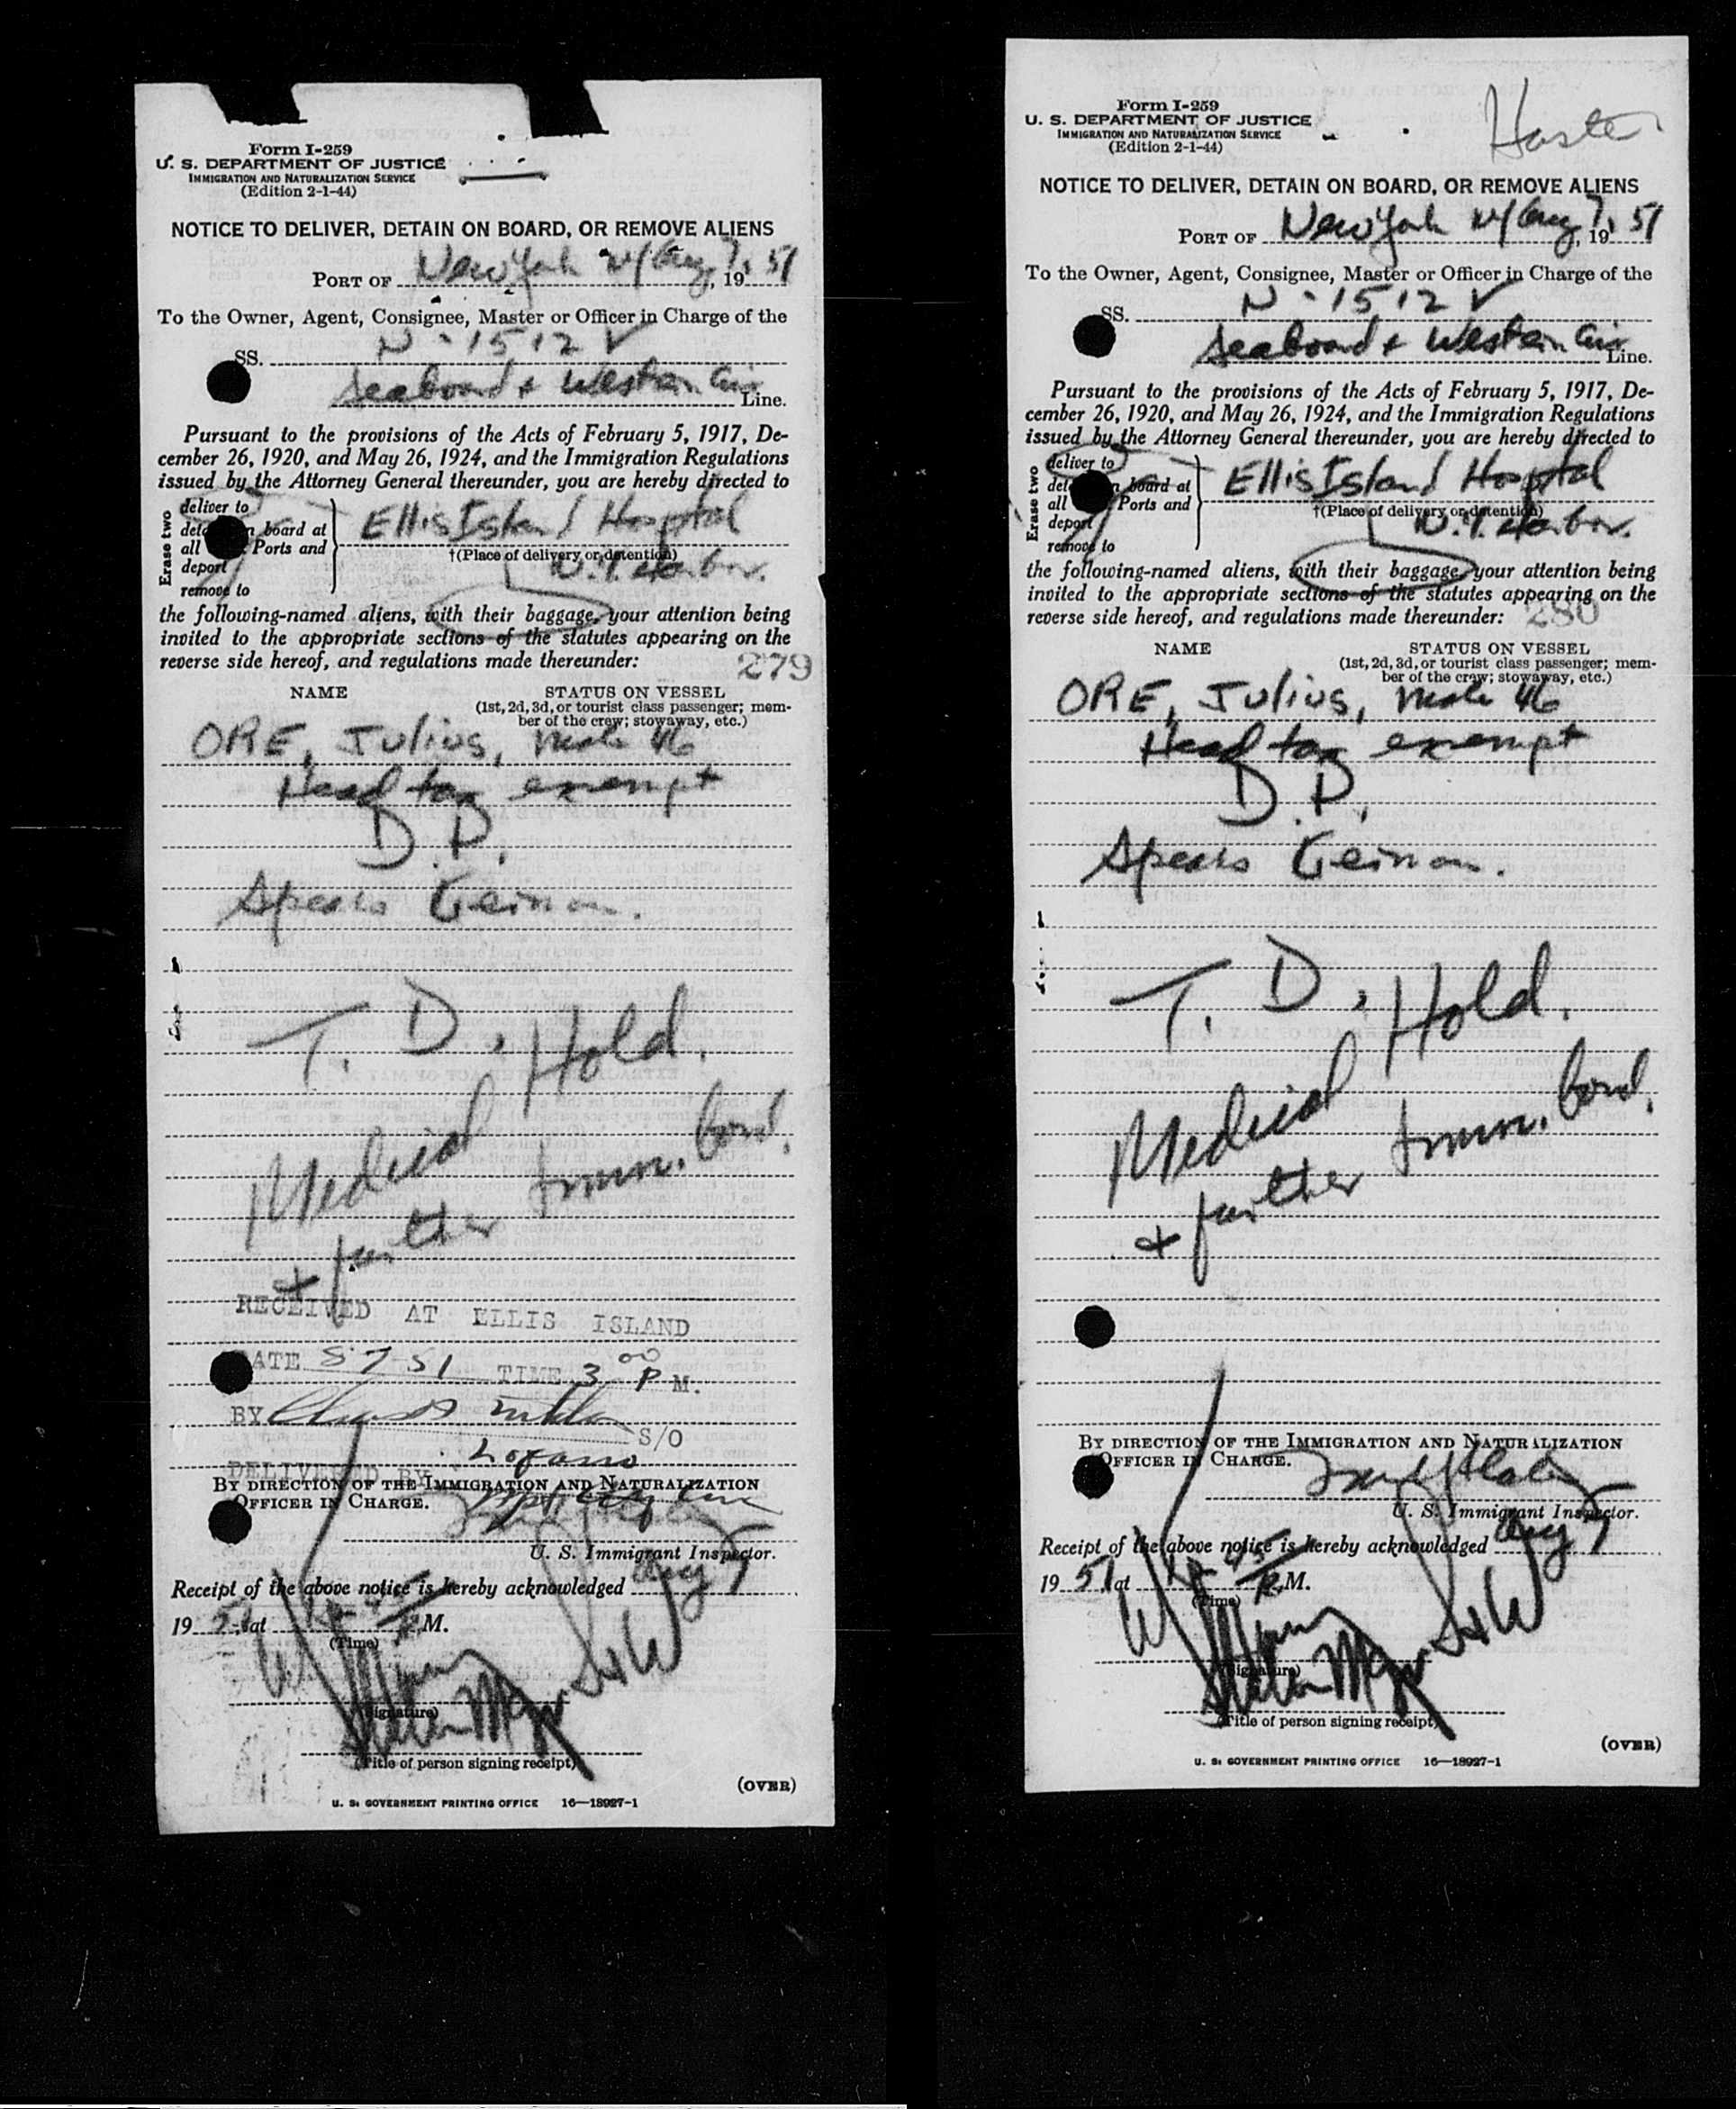 Form I-259
U. S. DEPARTMENT OF JUSTICE
IMMIGRATION AND NATURALIZATION SERVICE
(Edition 2-1-44)
NOTICE TO DELIVER, DETAIN ON BOARD, OR REMOVE ALIENS
PORT OF New York Aug 7, 19 51
To the Owner, Agent, Consignee, Master or Officer in Charge of the
SS. N-1512 V
Seaboard & Western Air Line.
Pursuant to the provisions of the Acts of February 5, 1917, De-
cember 26, 1920, and May 26, 1924, and the Immigration Regulations
issued by the Attorney General thereunder, you are hereby directed to
Erase two
deliver to
board at
all Ports and
deport
remove to
Ellis Island Hospital
†(Place of delivery or detention)
N.Y. Harbor.
the following-named aliens, with their baggage, your attention being
invited to the appropriate sections of the statutes appearing on the
reverse side hereof, and regulations made thereunder:
279
NAME STATUS ON VESSEL
(1st, 2d, 3d, or tourist class passenger; mem-
ber of the crew; stowaway, etc.)
ORE, Julius, male 46
Head tax exempt
D.P.
Speaks German.
T. D. Hold.
Medical
& further Imm. bond.
RECEIVED AT ELLIS ISLAND
DATE 8 7 51 TIME 3 00 P M.
BY S/O
DELIVERED BY
BY DIRECTION OF THE IMMIGRATION AND NATURALIZATION
OFFICER IN CHARGE.
U. S. Immigrant Inspector.
Receipt of the above notice is hereby acknowledged Aug 7
19 51 at M.
(Time)
(Signature)
(Title of person signing receipt)
(OVER)
U. S. GOVERNMENT PRINTING OFFICE 16—18927-1
Form I-259
U. S. DEPARTMENT OF JUSTICE
IMMIGRATION AND NATURALIZATION SERVICE
(Edition 2-1-44)
NOTICE TO DELIVER, DETAIN ON BOARD, OR REMOVE ALIENS
PORT OF New York Aug 7, 19 51
To the Owner, Agent, Consignee, Master or Officer in Charge of the
SS. N-1512 V
Seaboard & Western Air Line.
Pursuant to the provisions of the Acts of February 5, 1917, De-
cember 26, 1920, and May 26, 1924, and the Immigration Regulations
issued by the Attorney General thereunder, you are hereby directed to
Erase two
deliver to
board at
all Ports and
deport
remove to
Ellis Island Hospital
†(Place of delivery or detention)
N.Y. Harbor.
the following-named aliens, with their baggage, your attention being
invited to the appropriate sections of the statutes appearing on the
reverse side hereof, and regulations made thereunder:
280
NAME STATUS ON VESSEL
(1st, 2d, 3d, or tourist class passenger; mem-
ber of the crew; stowaway, etc.)
ORE, Julius, male 46
Head tax exempt
D.P.
Speaks German.
T. D. Hold.
Medical
& further Imm. bond.
BY DIRECTION OF THE IMMIGRATION AND NATURALIZATION
OFFICER IN CHARGE.
U. S. Immigrant Inspector.
Receipt of the above notice is hereby acknowledged Aug 7
19 51 at M.
(Time)
(Signature)
(Title of person signing receipt)
(OVER)
U. S. GOVERNMENT PRINTING OFFICE 16—18927-1